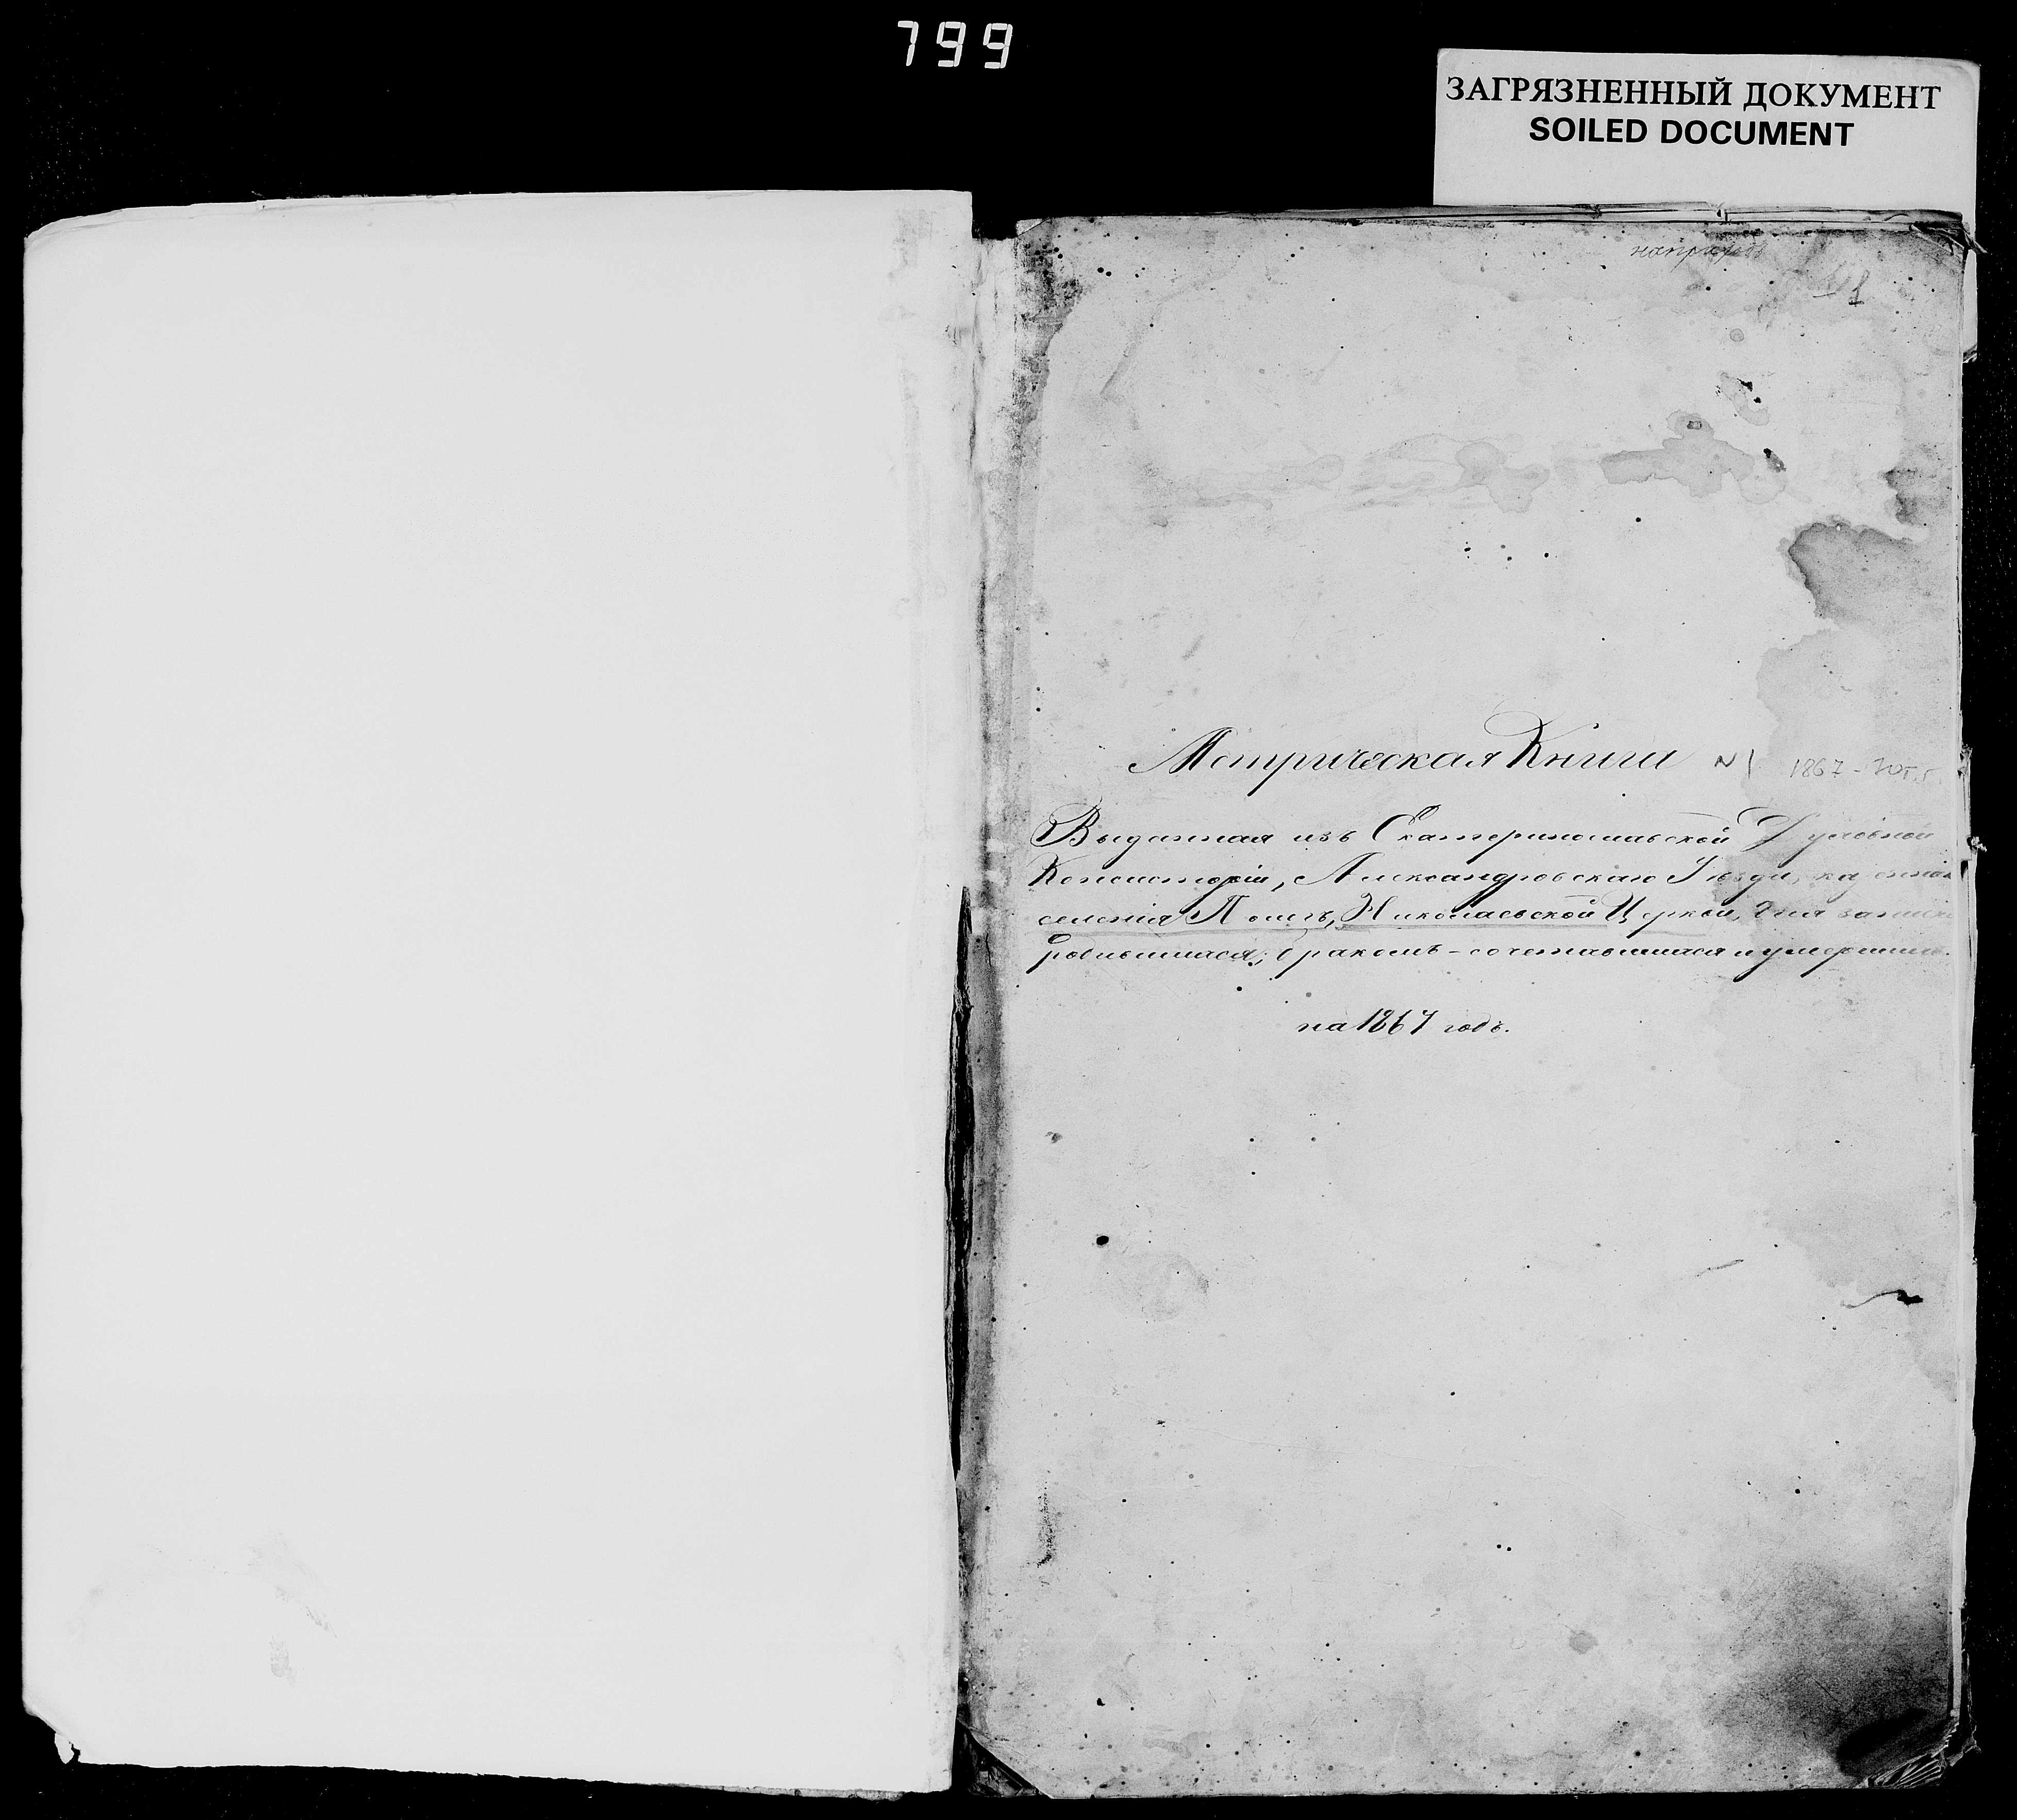 799
ЗАГРЯЗНЕННЫЙ ДОКУМЕНТ
SOILED DOCUMENT
1
Метрическая Книга N1 1867
Выданная изъ Екатеринославской Духовной
Консисторіи, Александровскаго Уѣзда, казеннаго
селенія Пологъ, Николаевской Церкви, для записи
родившихся, бракомъ-сочетавшихся и умершихъ.
на 1867 годъ.